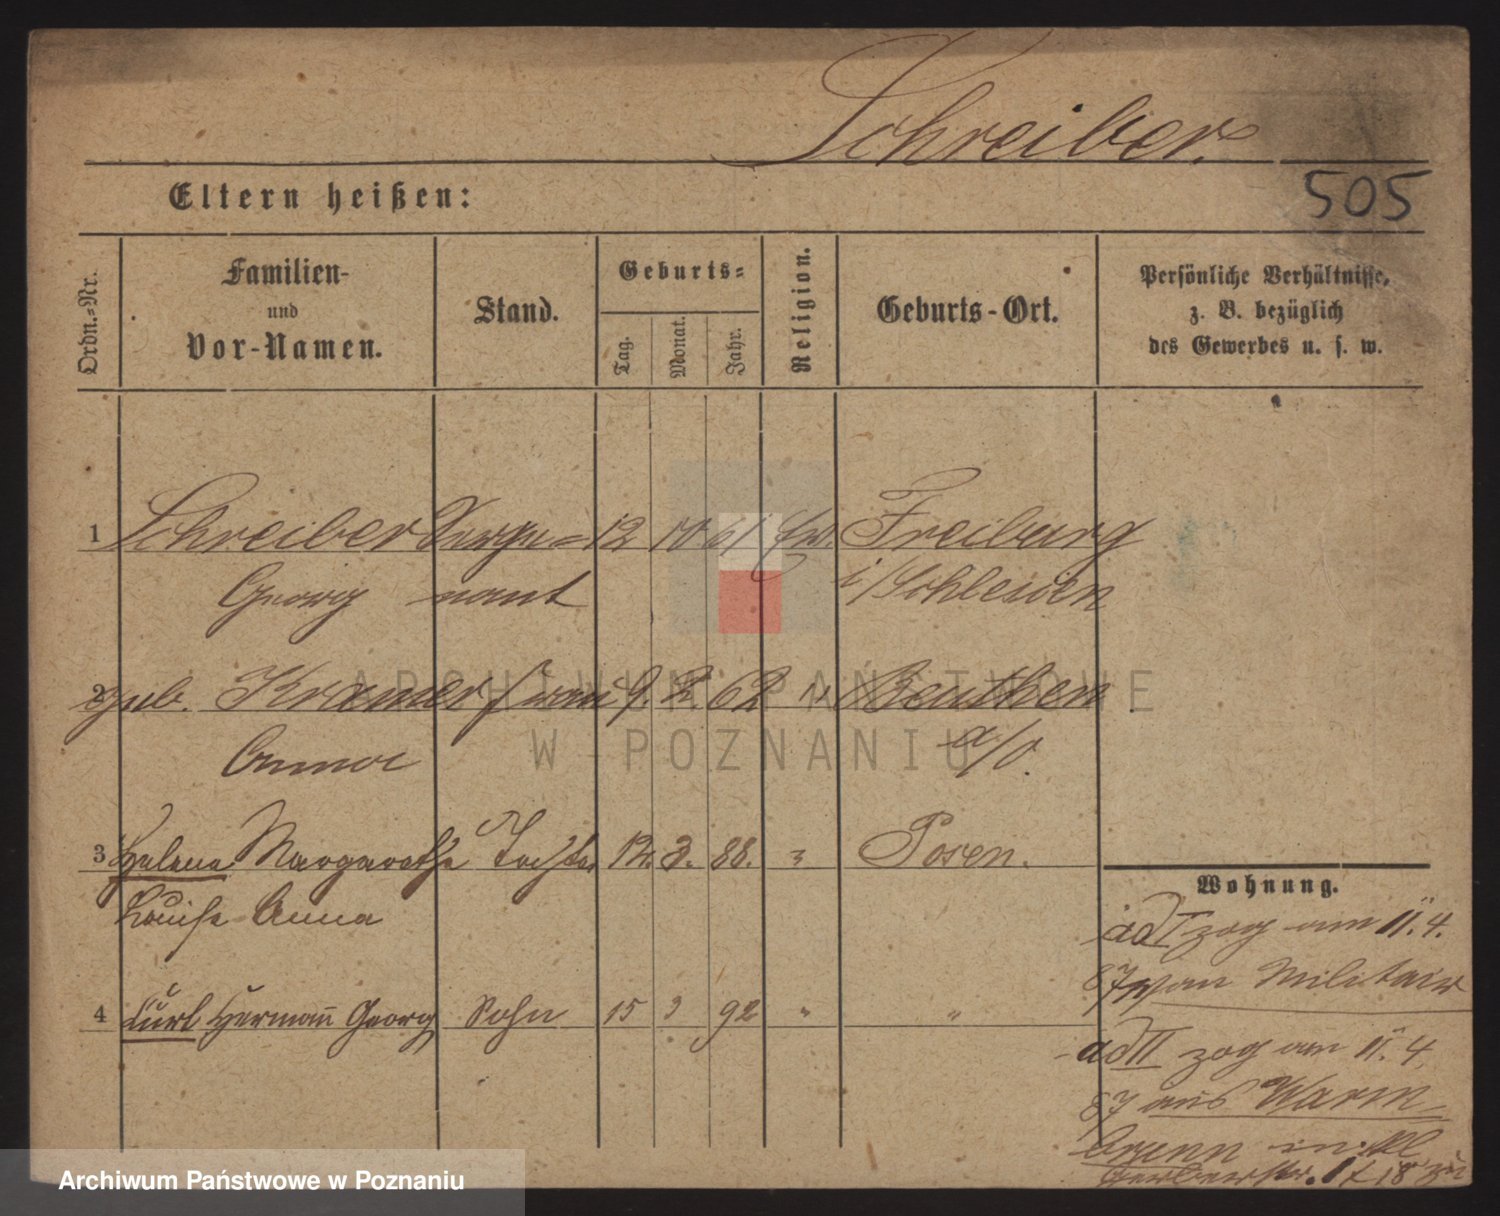 Schreiber.
505
Eltern heißen:
Ordn.-Nr.
Familien-
und
Vor-Namen.
Stand.
Geburts-
Tag.
Monat.
Jahr.
Religion.
Geburts-Ort.
Persönliche Verhältnisse,
z. B. bezüglich
des Gewerbes u. s. w.
1 Schreiber Serge= 12 10 61 Ev. Freiburg
Georg nant i/Schlesien
2 geb. Kramer Frau 9. 2 62 " Beuthen
Anna a/O.
3 Helene Margarethe Tochter 12. 3. 88. " Posen.
Louise Anna
4 Curt Hermann Georg Sohn 15 3 92 " "
Wohnung.
ad I zog am 11. 4.
87 von Militair
ad II zog am 11. 4.
87 aus Warm-
brunn in Kl
Gerberstr. 17/18 zu
ARCHIWUM PAŃSTWOWE
W POZNANIU
Archiwum Państwowe w Poznaniu